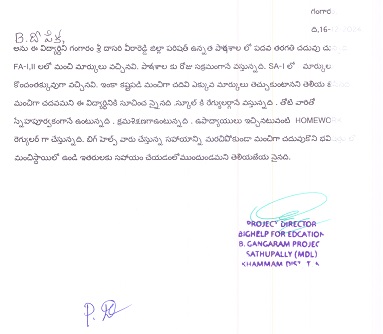 గంగారం
ది,16-12-2024
B.దోపిక్ష,
అను ఈ విద్యార్థిని గంగారం శ్రీ దాసరి వీరారెడ్డి జిల్లా పరిషత్ ఉన్నత పాఠశాల లో పదవ తరగతి చదువు
FA-I,II లలో మంచి మార్కులు వచ్చినవి. పాఠశాల కు రోజు సక్రమంగానే వస్తున్నది. SA-I లో మార్కుల
కొంచంతక్కువగా వచ్చినవి. ఇంకా కష్టపడి మంచిగా చదివి ఎక్కువ మార్కులు తెచ్చుకుంటానని తెలియ
మంచిగా చదవమని ఈ విద్యార్థినికి సూచించ నైనది .స్కూల్ కి రెగ్యులర్గానే వస్తున్నది . తోటి వారితో
స్నేహపూర్వకంగానే ఉంటున్నది . క్రమశిక్షణగాఉంటున్నది . ఉపాధ్యాయులు ఇచ్చినటువంటి HOMEWORK
రెగ్యులర్ గా చేస్తున్నది. బిగ్ హెల్ప్ వారు చేస్తున్న సహాయాన్ని మరచిపోకుండా మంచిగా చదువుకొని
మంచిస్థాయిలో ఉండి ఇతరులకు సహాయం చేయడంలోముందుండమని తెలియజేయ నైనది.
PROJECT DIRECTOR
BIGHELP FOR EDCATION
B. GANGARAM PROJEC
SATHUPALLY (MDL)
KHAMMAM DIST